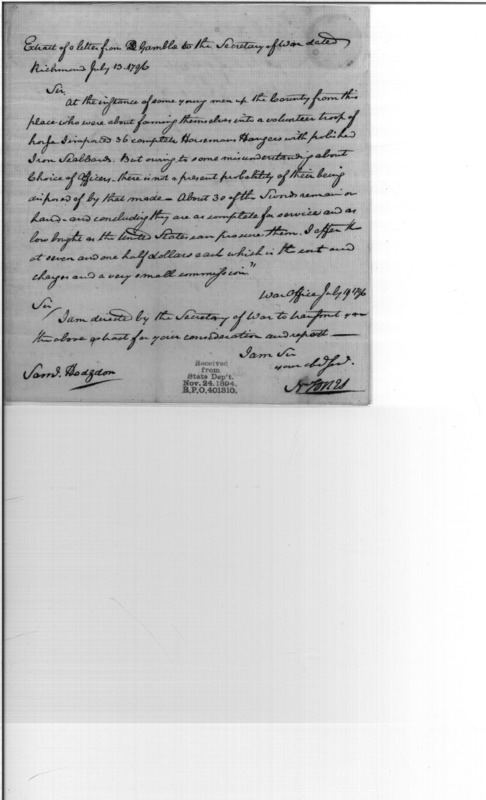 Extract of a letter from R Gamble to the Secretary of War dated
Richmond July 13. 1796
Sir,
At the instance of some young men up the County from this
place who were about forming themselves into a volunteer troop of
horse I imported 36 complete Horsemans Hangers with polished
Iron Scabbards. But owing to some misunderstanding about
Choice of Officers, there is not a present probability of their being
disposed of by that mode — About 30 of the Swords remain on
hand — and concluding they are as complete for service and as
low bought as the United States can procure them. I offer th
at seven and one half dollars each which is the cost and
charges and a very small commission"
War Office July 19 1796
Sir
I am directed by the Secretary of War to transmit you
the above extract for your consideration and report —
I am Sir
your obd Serv.
N Jones
Saml. Hodgdon
Received
from
State Dep't.
Nov. 24. 1894.
R.P.O. 401310.